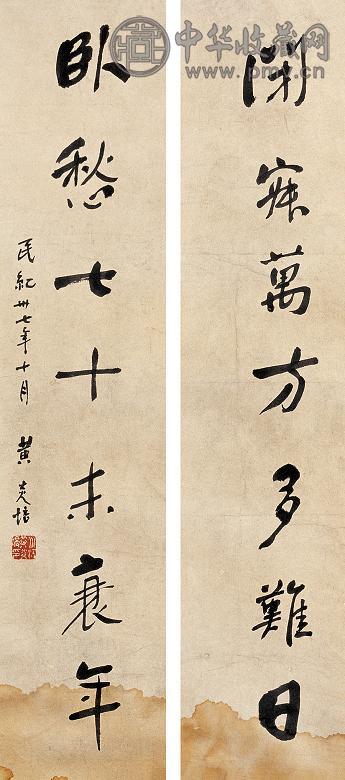 中华收藏网
www.pmy.cn
閉寐萬方多難日
臥愁七十未衰年
民紀卅七年十月 黃炎培